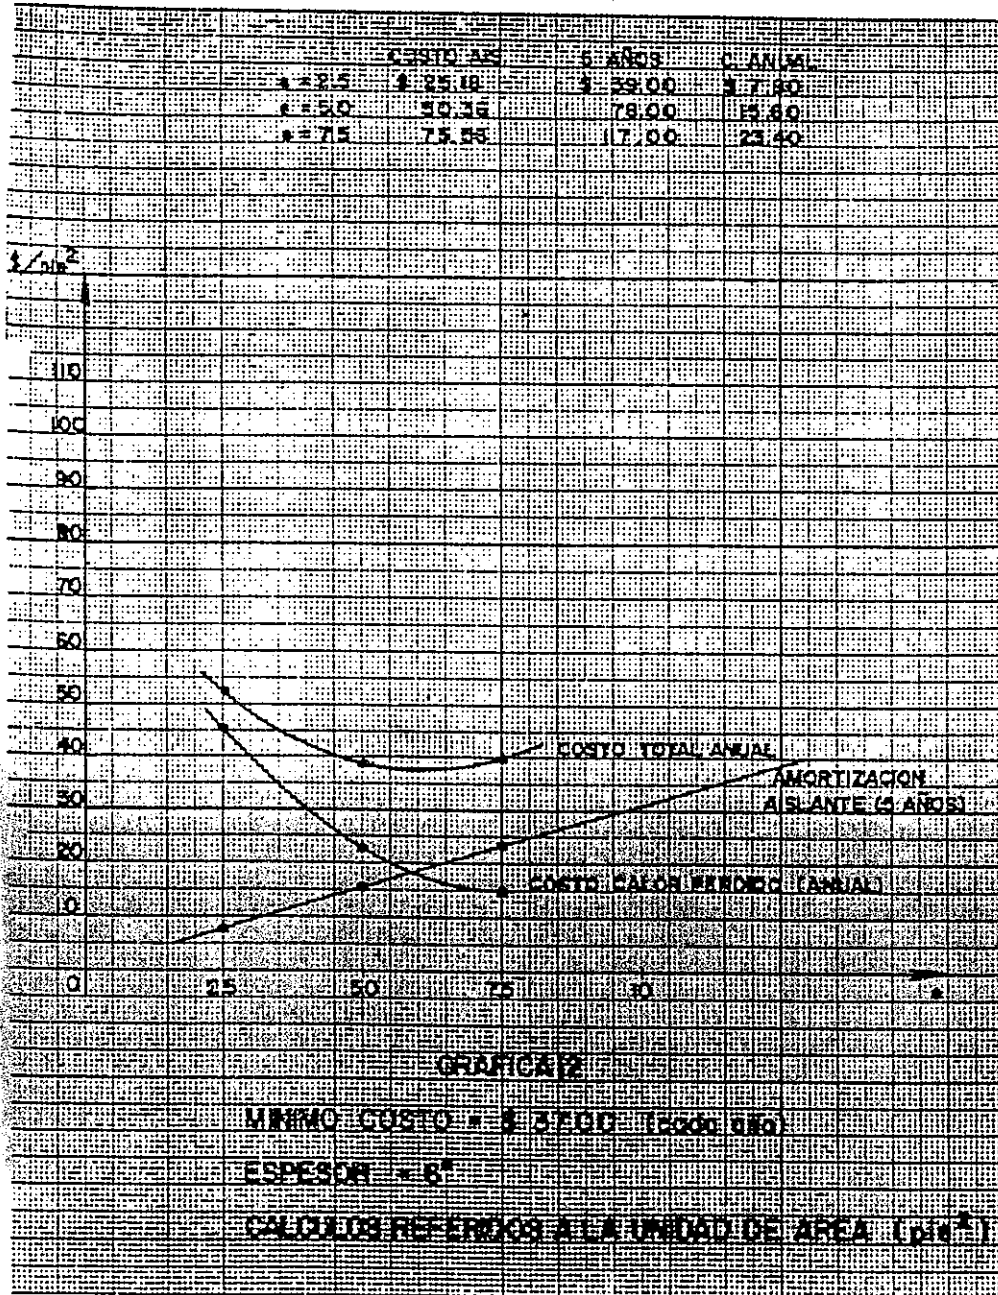 COSTO AIS. 5 AÑOS C. ANUAL
e = 2.5 $ 25.18 $ 39.00 $ 7.80
e = 5.0 50.36 78.00 15.60
e = 7.5 75.58 117.00 23.40
$/pie²
110
100
90
80
70
60
50
40
30
20
10
0
COSTO TOTAL ANUAL
AMORTIZACION
AISLANTE (5 AÑOS)
COSTO CALOR PERDIDO (ANUAL)
2.5 5.0 7.5 10
e
GRAFICA 12
MINIMO COSTO = $ 37.00 (cada año)
ESPESOR = 6"
CALCULOS REFERIDOS A LA UNIDAD DE AREA (pie²)